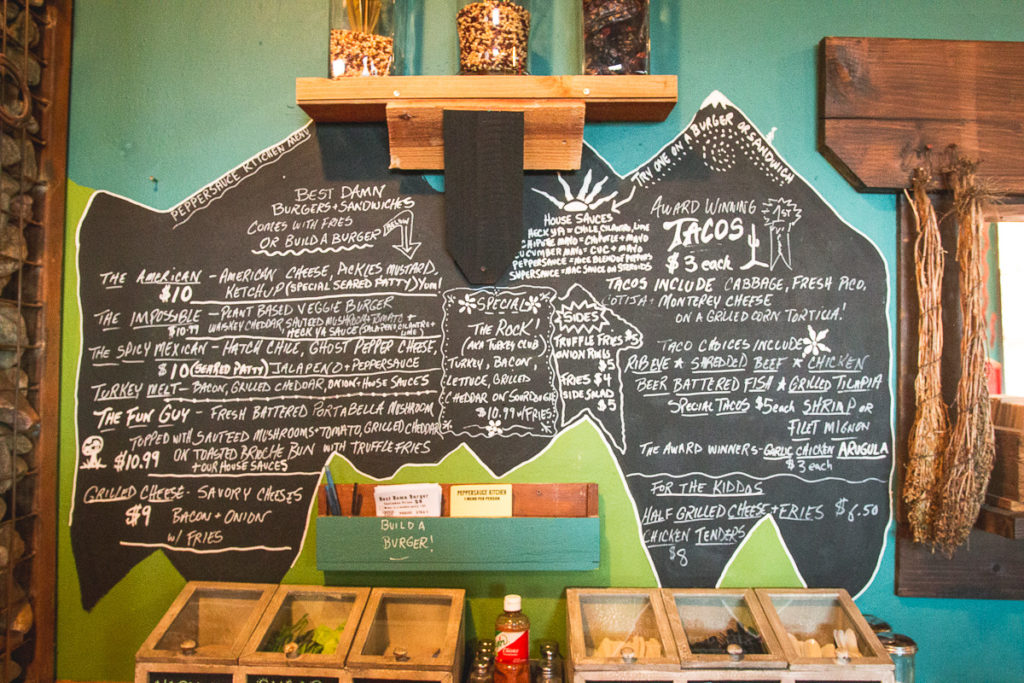 PEPPERSAUCE KITCHEN MENU
BEST DAMN
BURGERS + SANDWICHES
COMES WITH FRIES
OR BUILD A BURGER
BELOW
THE AMERICAN - AMERICAN CHEESE, PICKLES MUSTARD,
$10 KETCHUP (SPECIAL SEARED PATTY) YUM!
THE IMPOSSIBLE - PLANT BASED VEGGIE BURGER
$10.99 WHISKEY CHEDDAR, SAUTEED MUSHROOM TOMATO +
HECK YA SAUCE (JALAPENO CILANTRO + LIME
THE SPICY MEXICAN - HATCH CHILE, GHOST PEPPER CHEESE,
$10 (SEARED PATTY) JALAPENO + PEPPERSAUCE
TURKEY MELT - BACON, GRILLED CHEDDAR, ONION + HOUSE SAUCES
THE FUN GUY - FRESH BATTERED PORTABELLA MUSHROOM
TOPPED WITH SAUTEED MUSHROOMS + TOMATO, GRILLED CHEDDAR
$10.99 ON TOASTED BROCHE BUN WITH TRUFFLE FRIES
+ OUR HOUSE SAUCES
GRILLED CHEESE - SAVORY CHEESES
$9 BACON + ONION
W/ FRIES
HOUSE SAUCES
HECK YA = CHILE, CILANTRO, LIME
CHIPOTLE MAYO = CHIPOTLE + MAYO
CUCUMBER MAYO = CUC + MAYO
PEPPERSAUCE = NICE BLEND OF PEPPERS
SUPERSAUCE = MAC SAUCE ON STEROIDS
SPECIAL
THE ROCK!
(AKA TURKEY CLUB)
TURKEY, BACON,
LETTUCE, GRILLED
CHEDDAR ON SOURDOUGH
$10.99 W/FRIES
SIDES
TRUFFLE FRIES
$5
ONION RINGS
$5
FRIES $4
SIDE SALAD
$5
TRY ONE ON A BURGER OR SANDWICH
AWARD WINNING
1ST
TACOS
$3 each
TACOS INCLUDE CABBAGE, FRESH PICO,
COTIJA + MONTEREY CHEESE
ON A GRILLED CORN TORTILLA!
TACO CHOICES INCLUDE
RIBEYE ★ SHREDDED BEEF ★ CHICKEN
BEER BATTERED FISH ★ GRILLED TILAPIA
SPECIAL TACOS $5 each SHRIMP OR
FILET MIGNON
THE AWARD WINNERS - GARLIC CHICKEN ARUGULA
$3 each
FOR THE KIDDOS
HALF GRILLED CHEESE + FRIES $6.50
CHICKEN TENDERS
$8
Best Damn Burger
PEPPERSAUCE KITCHEN
1 MENU PER PERSON
BUILD A
BURGER!